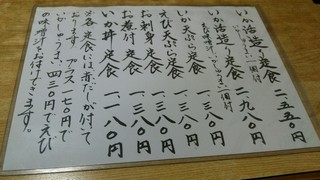 いか活造り定食 二、五五〇円
いか活造り定食 二、九八〇円
いか天ぷら定食 一、三八〇円
えび天ぷら定食 一、三八〇円
お刺身定食 一、三八〇円
お煮付定食 一、三八〇円
いか丼定食 一、一八〇円
※各定食には赤だしが付いて
おります。プラス一七〇円で
いかしゅうまい、四三〇円でえび
の味噌汁をお付けできます。